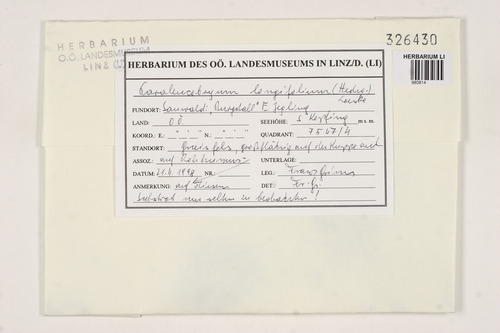 HERBARIUM
O.Ö. LANDESMUSEUM
LINZ (LI)
326430
HERBARIUM LI
HERBARIUM DES OÖ. LANDESMUSEUMS IN LINZ/D. (LI)
Paraleucobryum longifolium (Hedw.)
Loeske
FUNDORT: Sauwald: "Burgstall" E
LAND: OÖ SEEHÖHE: S Kopfing m s. m.
KOORD.: E: ° ' " N.: ° ' " QUADRANT: 7547/4
STANDORT: Granitfels, großflächig auf der Kuppe und
ASSOZ.: auf UNTERLAGE:
DATUM: 21.4.1998 NR.: LEG.: Franz Grims
ANMERKUNG: auf DET.: Fr. Gr.
Substrat nur selten zu beobachten!